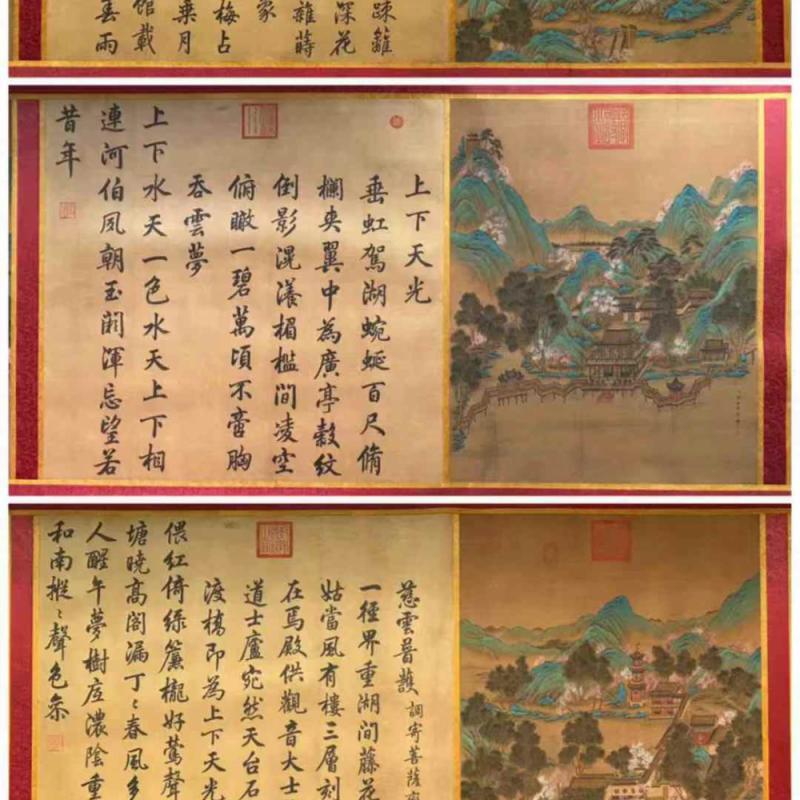 疎籬
深花
雜蒔
象
梅占
乘月
館載
春雨
上下天光
垂虹駕湖蜿蜒百尺脩
欄夾翼中為廣亭縠紋
倒影滉瀁楣檻間淩空
俯瞰一碧萬頃不啻胸
吞雲夢
上下水天一色水天上下相
連河伯夙朝玉闕渾忘望若
昔年
慈雲普護 調寄菩薩
一徑界重湖間藤花
姑當風有樓三層刻
在焉殿供觀音大士
道士廬宛然天台石
渡橋即為上下天光
偎紅倚綠簾櫳好鶯聲
塘曉高閣漏丁〻春風多
人醒午夢樹庇濃陰重
和南摐〻聲色參